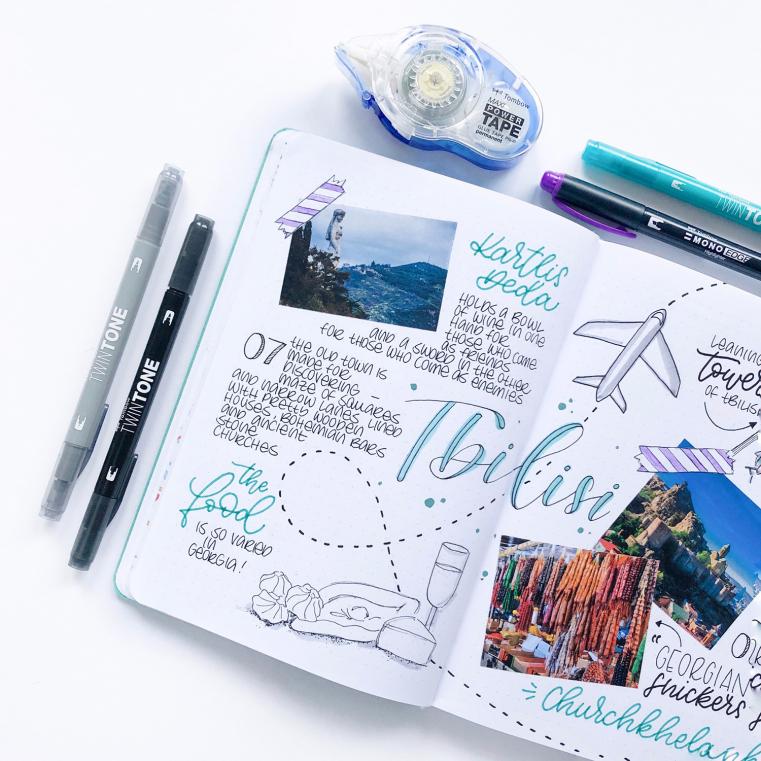 Tombow
MAXI
POWER
TAPE
GLUE TAPE
permanent
TWINTONE
TWINTONE
TWINTO
MONO EDGE
Highlighter
Kartlis
Deda
HOLDS A BOWL
OF WINE IN ONE
HAND FOR
THOSE WHO COME
AS FRIENDS
AND A SWORD IN THE OTHER
FOR THOSE WHO COME AS ENEMIES
07 THE OLD TOWN IS
MADE FOR
DISCOVERING –
MAZE OF SQUARES
AND NARROW LANES LINED
WITH PRETTY WOODEN
HOUSES, BOHEMIAN BARS
AND ANCIENT
STONE
CHURCHES
Tbilisi
the
food
IS SO VARIED
IN
GEORGIA!
LEANING
Tower
OF TBILIS
"GEORGIAN
snickers
Churchkhela